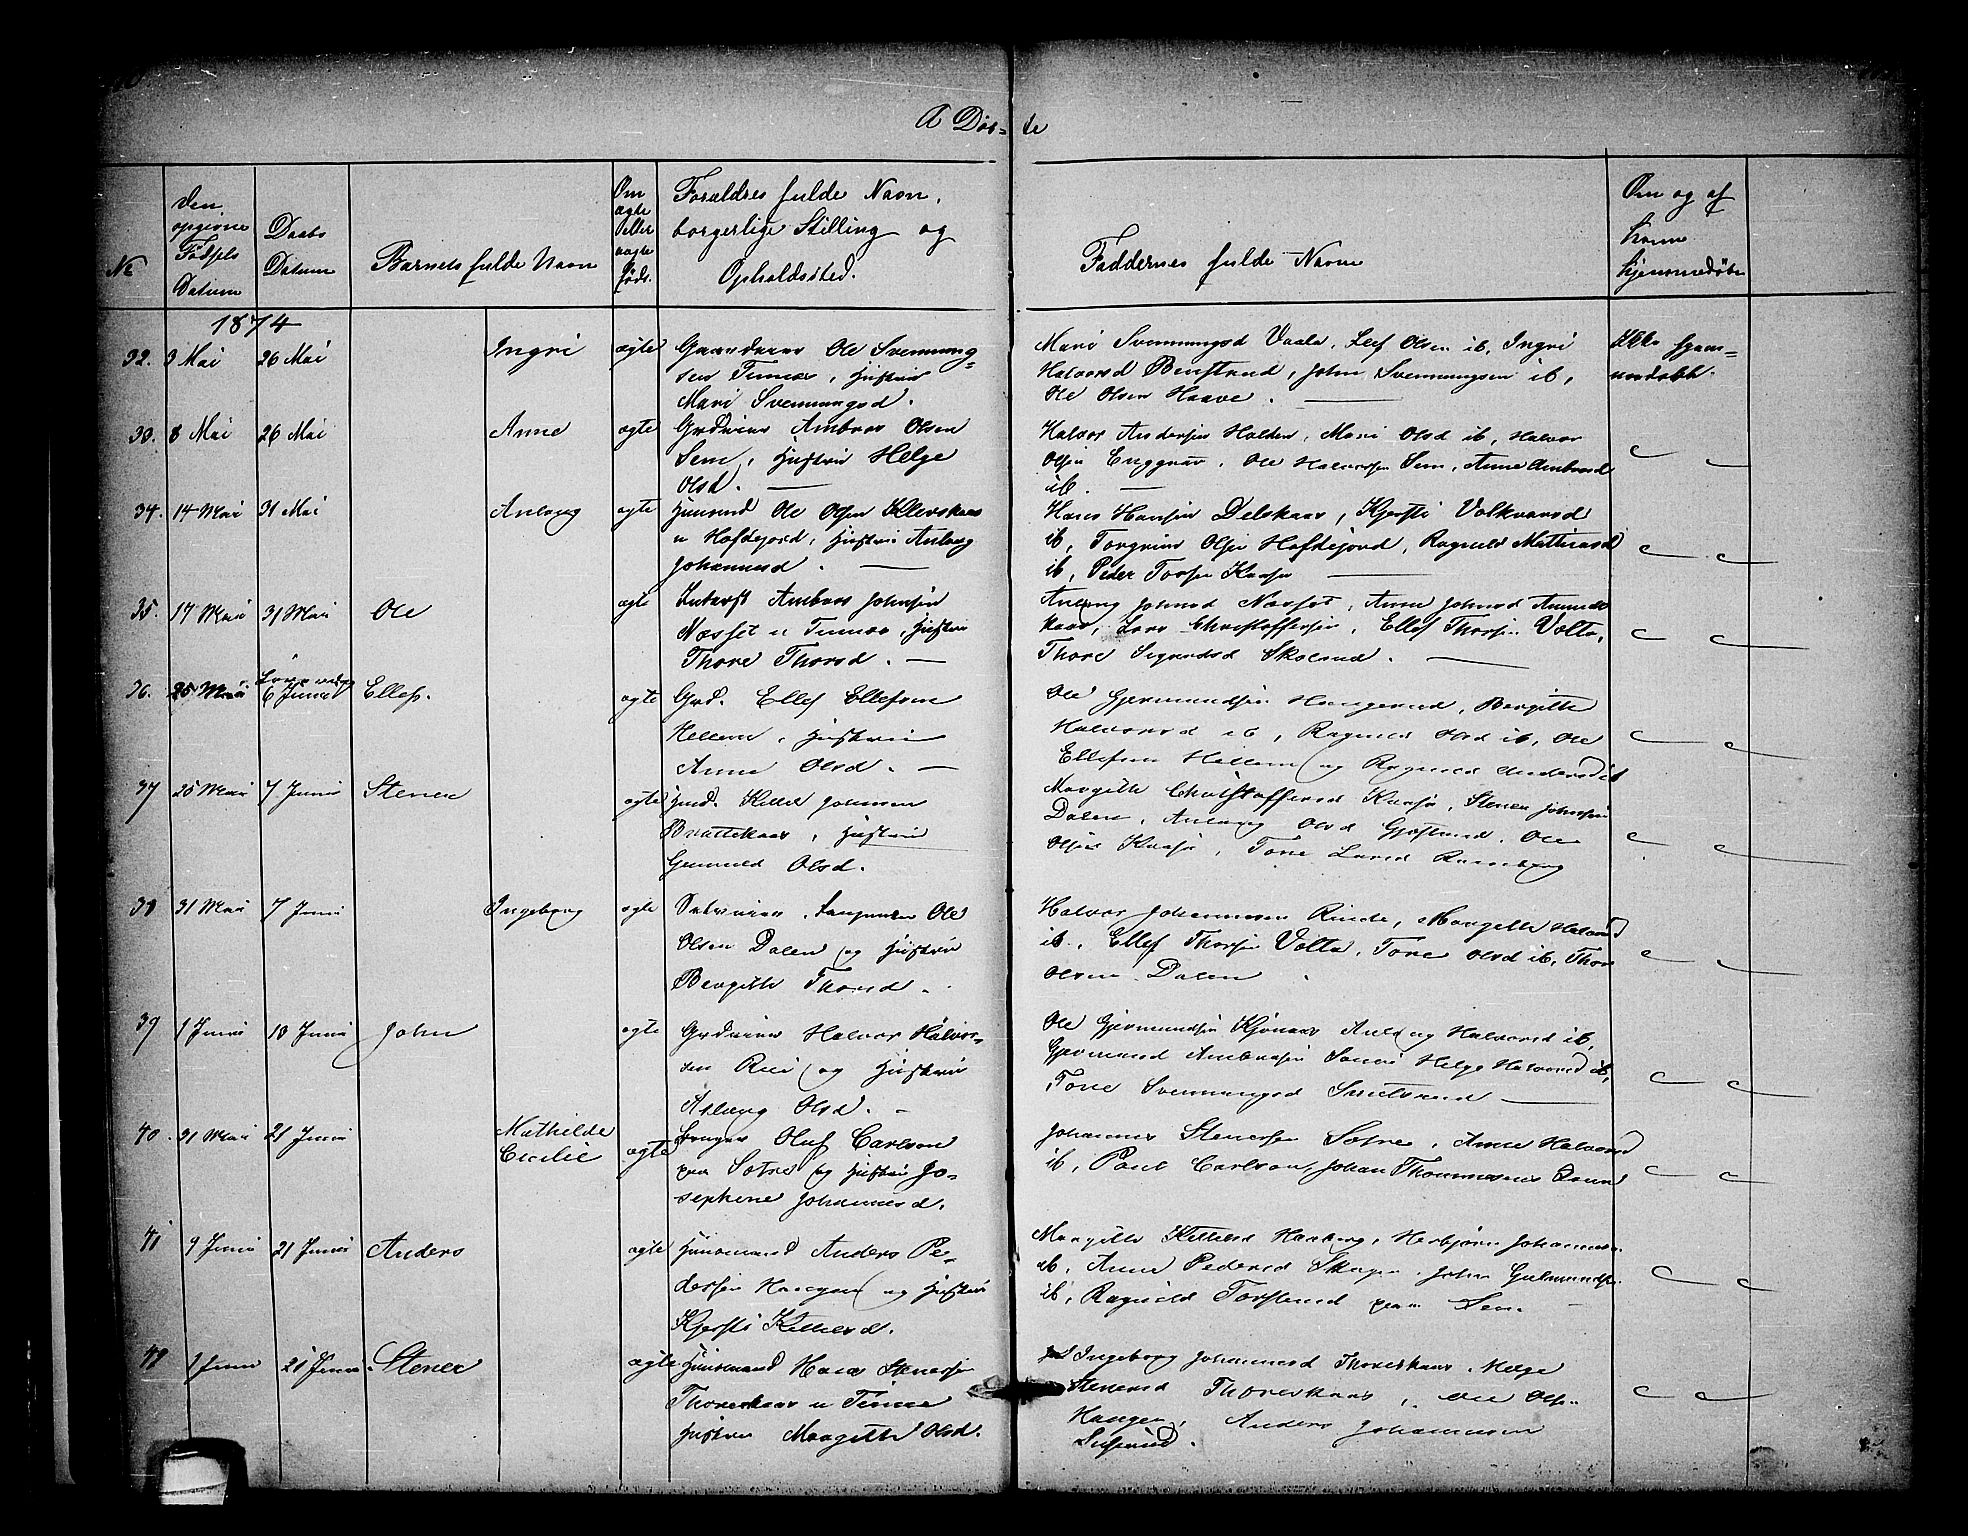 A Døb- te
No
Den opgivne Fødsels Datum
Daabs Datum
Barnets fulde Navn
Om ægte eller uægte født.
Forældres fulde Navn, borgerlige Stilling og Opholdssted.
Faddernes fulde Navne
Om og af hvem hjemmedøbt
1874
32. 3 Mai 26 Mai Ingri ægte Gaardbrur Ole Svennung-
sen Tinnes, Hustru
Mari Svennungsd.
Mari Svennungsd Vaala, Leif Olsen ib, Ingri
Halvorsd Benstrud, John Svennungsen ib,
Ole Olsen Haave.
Ikke hjem-
medøbt.
33. 8 Mai 26 Mai Anne ægte Grdbrur Ambros Olsen
Sem, Hustru Helge
Olsd.
Halvor Andersen Holden, Mari Olsd ib, Halvor
Olsen Enggrav, Ole Halvorsen Sem, Anne Ambrosd
ib.
34. 14 Mai 31 Mai Anlaug ægte Husmd Ole Olsen
u Hofdejord, Hustru Anlaug
Johannesd.
Hans Hansen Delskaas, Kjersti Volkvarsd
ib, Torgrim Olsen Hofdejord, Ragnild Mathiasd
ib, Peder Torsen Kaasa
35. 17 Mai 31 Mai Ole ægte Inderst Ambros Johnsen
Næsset u Tinnes, Hustru
Thore Thorsd.
Anlaug Johnsd Næsset, Anne Johnsd
Lars Christoffersen, Ellef Thorsen Volta,
Thore Sigurdsd Skolrud.
36. 25 Mai 6 Juni Ellef. ægte Grd. Ellef Ellefsen
Hellem, Hustru
Anne Olsd.
Ole Gjermundsen Haugerud, Bergitte
Halvorsd ib, Ragnild Olsd ib, Ole
Ellefsen Hellem og Ragnild Andersd ib
37 25 Mai 7 Juni Stener ægte Hmd. Kittil Johnsen
Brattekaas, Hustru
Gunnild Olsd.
Margitte Christoffersd Kaasa, Stener Johnsen
Dalen, Anlaug Olsd Gjostrud, Ole
Olsen Kaasa, Tone Larsd Ramberg
38 31 Mai 7 Juni Ingeborg ægte Ole
Olsen Dalen og Hustru
Bergitte Thorsd.
Halvor Johannessen Rinde, Margitte Halvorsd
ib, Ellef Thorsen Volta, Tone Olsd ib, Thor
Olsen Dalen
39 1 Juni 10 Juni John ægte Grdbrur Halvor Halvor-
sen Rui og Hustru
Aslaug Olsd.
Ole Gjermundsen Kjønaas Aslaug Halvorsd ib,
Gjermund Ambrosen Helge Halvorsd ib,
Tone Svennungsd
40 31 Mai 21 Juni Mathilde
Cecilie ægte Oluf Carlson
paa Sotre og Hustru Jo-
sephine Johannesd.
Johannes Stenersen Sotre, Anne Halvorsd
ib, Paul Carlson, Johan Thommesen
41 9 Juni 21 Juni Anders ægte Husmand Anders Pe-
dersen Haugen og Hustru
Kjersti Kittilsd.
Margitte Kittilsd Haaberg, Herbjørn Johannessen
ib, Anne Pedersd Skogen, John Gulmundsen
ib, Ragnild Torstensd paa Sem
42 1 Juni 21 Juni Stener ægte Husmand Hans Stenersen
Thoreskaas u Tinne
Hustru Margitte Olsd.
Ingeborg Johannesd Thoreskaas, Helge
Stenersd Thoreskaas, Ole Olsen
Haugen, Anders Johannessen